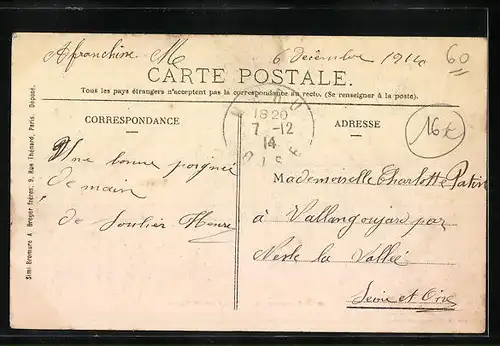 Afranchise M 6 Décembre 1914
60
CARTE POSTALE.
Tous les pays étrangers n'acceptent pas la correspondance au recto. (Se renseigner à la poste).
CORRESPONDANCE
ADRESSE
18 20
7 - 12
14
OISE
16t
Une bonne poignée
de main
de Soulier Henri
Mademoiselle Charlotte Patin
à Vallangoujard par
Nesle la Vallée
Seine et Oise
Simi-Bromure A. Breger frères, 9, Rue Thénard, Paris. Déposé.